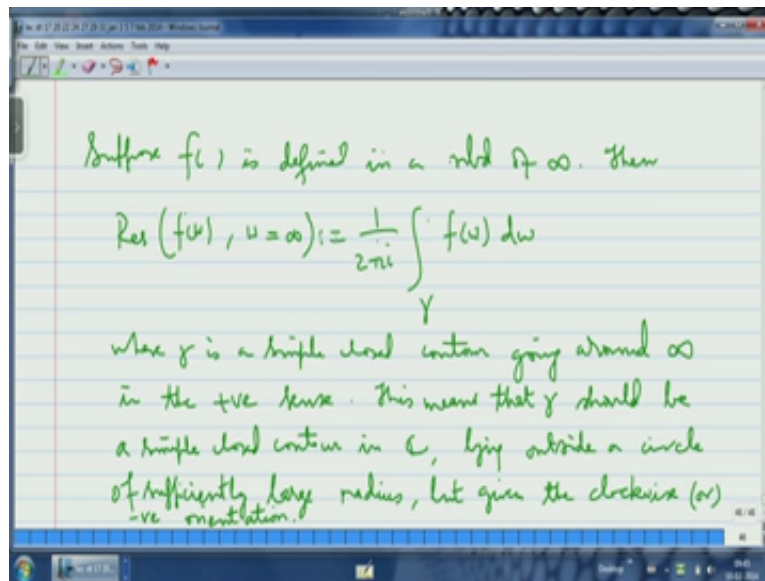 File Edit View Insert Actions Tools Help
Suppose f( ) is defined in a nbd of ∞. Then
Res (f(w), w = ∞) := 1/2πi ∫γ f(w) dw
where γ is a simple closed contour going around ∞
in the +ve sense. This means that γ should be
a simple closed contour in ℂ, lying outside a circle
of sufficiently large radius, but given the clockwise (or)
-ve orientation.